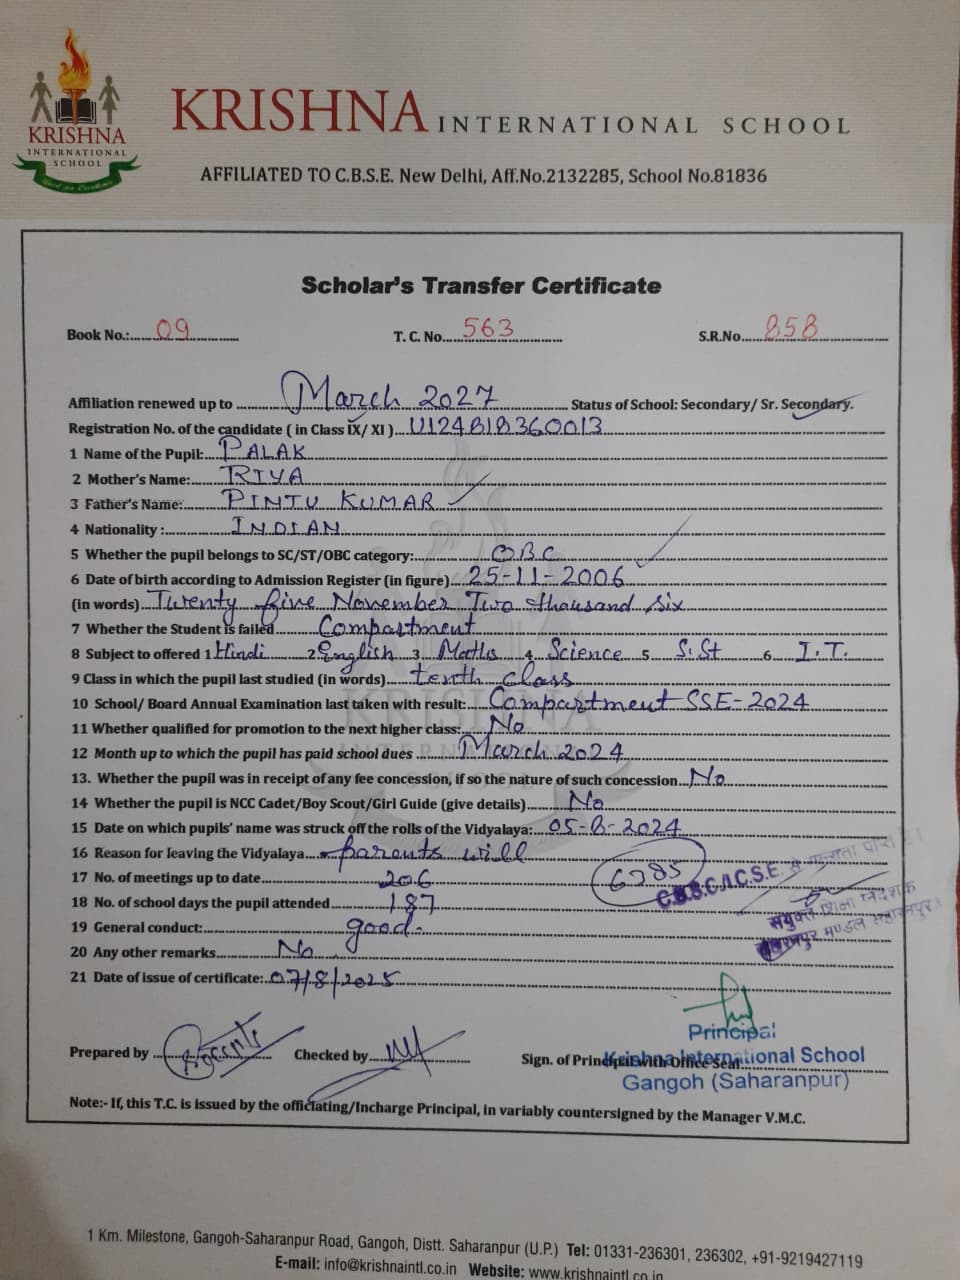 KRISHNA
INTERNATIONAL
SCHOOL
KRISHNA INTERNATIONAL SCHOOL
AFFILIATED TO C.B.S.E. New Delhi, Aff.No.2132285, School No.81836
Scholar's Transfer Certificate
Book No.:....09.... T. C. No....563.... S.R.No....858....
Affiliation renewed up to ....March 2027.... Status of School: Secondary/ Sr. Secondary.
Registration No. of the candidate ( in Class IX/ XI )....U124818360013....
1 Name of the Pupil:....PALAK....
2 Mother's Name:....RIYA....
3 Father's Name:....PINTU KUMAR....
4 Nationality :....INDIAN....
5 Whether the pupil belongs to SC/ST/OBC category:....OBC....
6 Date of birth according to Admission Register (in figure)....25-11-2006....
(in words)....Twenty five November Two thousand six
7 Whether the Student is failed....Compartment....
8 Subject to offered 1 Hindi 2 English 3 Maths 4 Science 5 S.St 6 I.T.
9 Class in which the pupil last studied (in words)....tenth class....
10 School/ Board Annual Examination last taken with result:....Compartment SSE-2024
11 Whether qualified for promotion to the next higher class:....No....
12 Month up to which the pupil has paid school dues ....March 2024....
13. Whether the pupil was in receipt of any fee concession, if so the nature of such concession....No....
14 Whether the pupil is NCC Cadet/Boy Scout/Girl Guide (give details)....No....
15 Date on which pupils' name was struck off the rolls of the Vidyalaya:....05-8-2024....
16 Reason for leaving the Vidyalaya....parents will....
17 No. of meetings up to date....206....
6285
C.B.S.C./I.C.S.E. से मान्यता प्राप्त है।
18 No. of school days the pupil attended....187....
संयुक्त शिक्षा निदेशक
19 General conduct:....good....
सहारनपुर मण्डल सहारनपुर।
20 Any other remarks....No....
21 Date of issue of certificate:....07/8/2025....
Principal
Prepared by ........ Checked by ........ Sign. of Principal with Office Seal........
Krishna International School
Gangoh (Saharanpur)
Note:- If, this T.C. is issued by the officiating/Incharge Principal, in variably countersigned by the Manager V.M.C.
1 Km. Milestone, Gangoh-Saharanpur Road, Gangoh, Distt. Saharanpur (U.P.) Tel: 01331-236301, 236302, +91-9219427119
E-mail: info@krishnaintl.co.in Website: www.krishnaintl.co.in